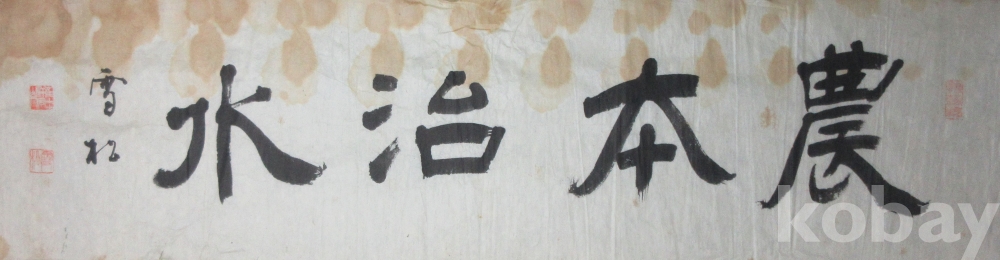 農本治水
雪松
kobay